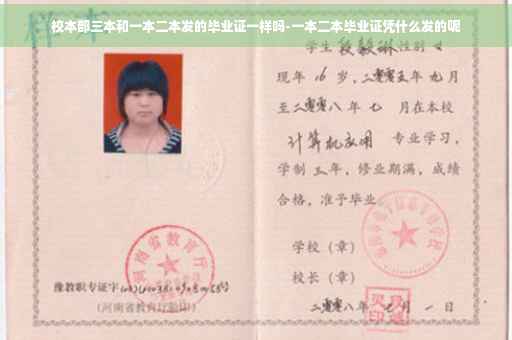 校本部三本和一本二本发的毕业证一样吗-一本二本毕业证凭什么发的呢
样本
学生 段毅琳 性别 女
现年 16 岁，二零零五年 九月
至二零零八年 七 月在本校
计算机应用 专业学习，
学制 三年，修业期满，成绩
合格，准予毕业
学校（章）
校长（章）
二零零八年 七 月 一 日
河南省教育厅
豫教职专证字
(河南省教育厅验印)